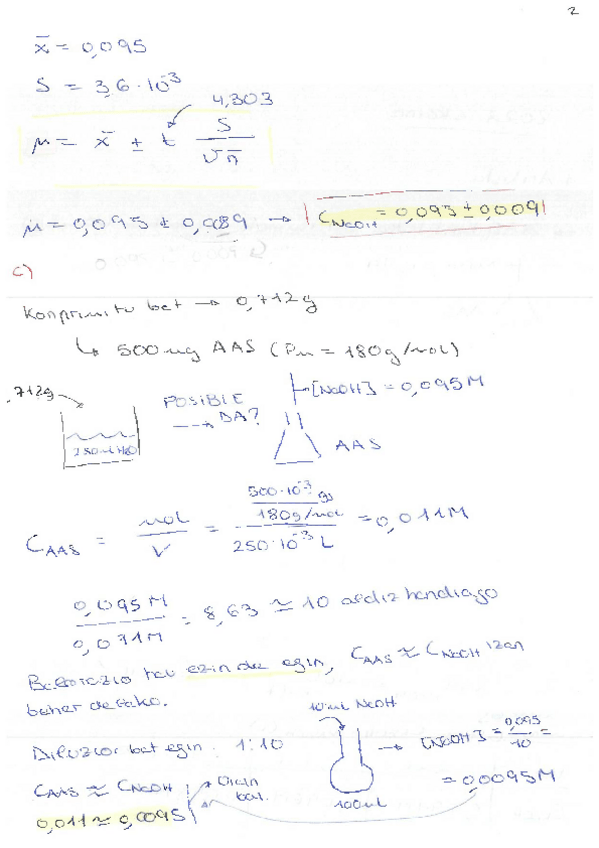 2
x̄ = 0,095
S = 3,6·10⁻³
4,303
μ = x̄ ± t S/√n
μ = 0,095 ± 0,0089 → C_NaOH = 0,093 ± 0,0091
c)
Konprimitu bat → 0,712g
↳ 500 mg AAS (Pm = 180g/mol)
,712g
250 ml H₂O
POSIBLE DA?
[NaOH] = 0,095M
AAS
C_AAS = mol/V = (500·10⁻³ g / 180g/mol) / 250·10⁻³ L = 0,011M
0,095 M / 0,011M = 8,63 ≃ 10 aldiz handiago
Balorazio hau ezin da egin, C_AAS ≈ C_NaOH izan
behar delako.
10 ml NaOH
Diluzio bat egin: 1:10
100mL
→ [NaOH] = 0,095/10 =
= 0,0095M
C_AAS ≈ C_NaOH
0,011 ≈ 0,0095